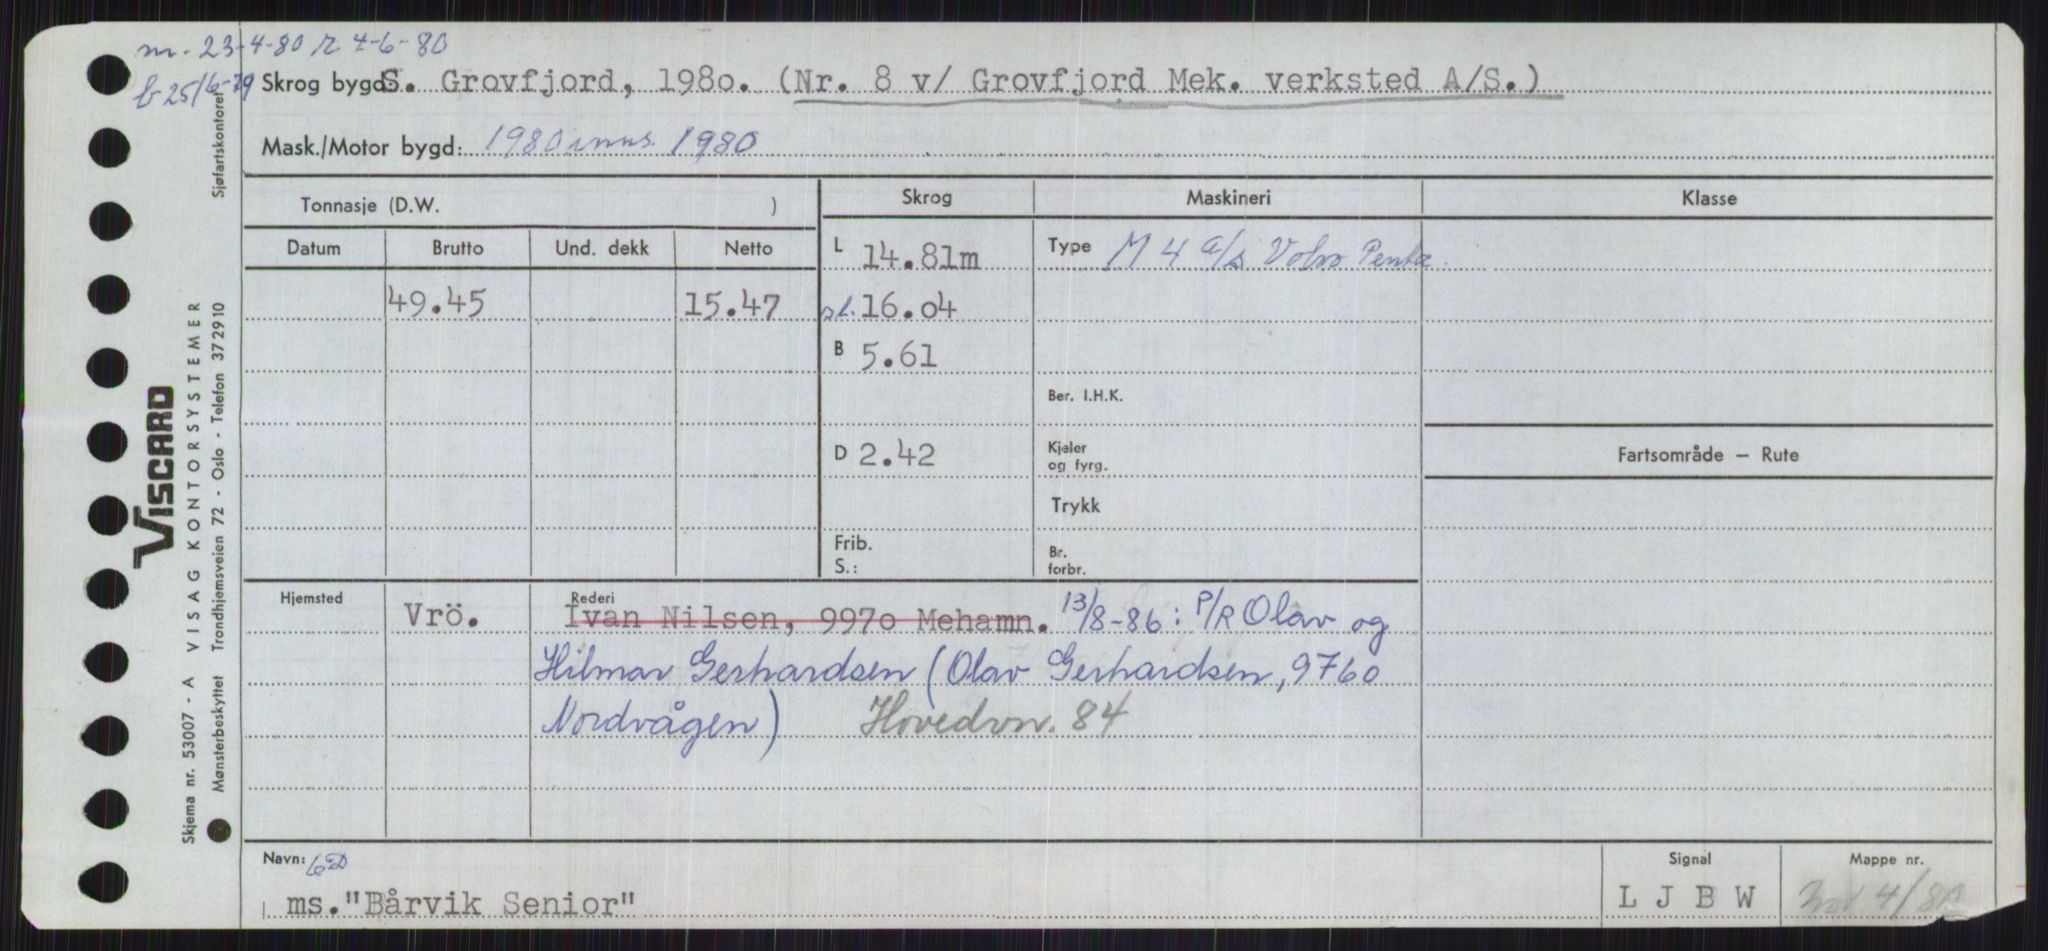 m. 23-4-80 r 4-6-80
b 25/6-79
Skrog bygd: S. Grovfjord, 1980. (Nr. 8 v/ Grovfjord Mek. verksted A/S.)
Mask./Motor bygd: 1980 inns. 1980
Tonnasje (D.W. )
Skrog Maskineri Klasse
Datum Brutto Und. dekk Netto
L 14.81m Type M 4 a/s Volvo Penta
49.45 15.47 st. 16.04
B 5.61
Ber. I.H.K.
D 2.42 Kjeler og fyrg.
Fartsområde – Rute
Trykk
Frib.
S.:
Br. forbr.
Hjemsted Vrö. Rederi Ivan Nilsen, 9970 Mehamn. 13/8-86: P/R Olav og
Hilmar Gerhardsen (Olav Gerhardsen, 9760
Nordvågen) Hovedvn. 84
Navn:
ms. "Bårvik Senior"
Signal
L J B W
Mappe nr.
4/80
Sjøfartskontoret
VISCARD
VISAG KONTORSYSTEMER
Skjema nr. 53007 - A
Mønsterbeskyttet Trondhjemsveien 72 - Oslo - Telefon 37 29 10